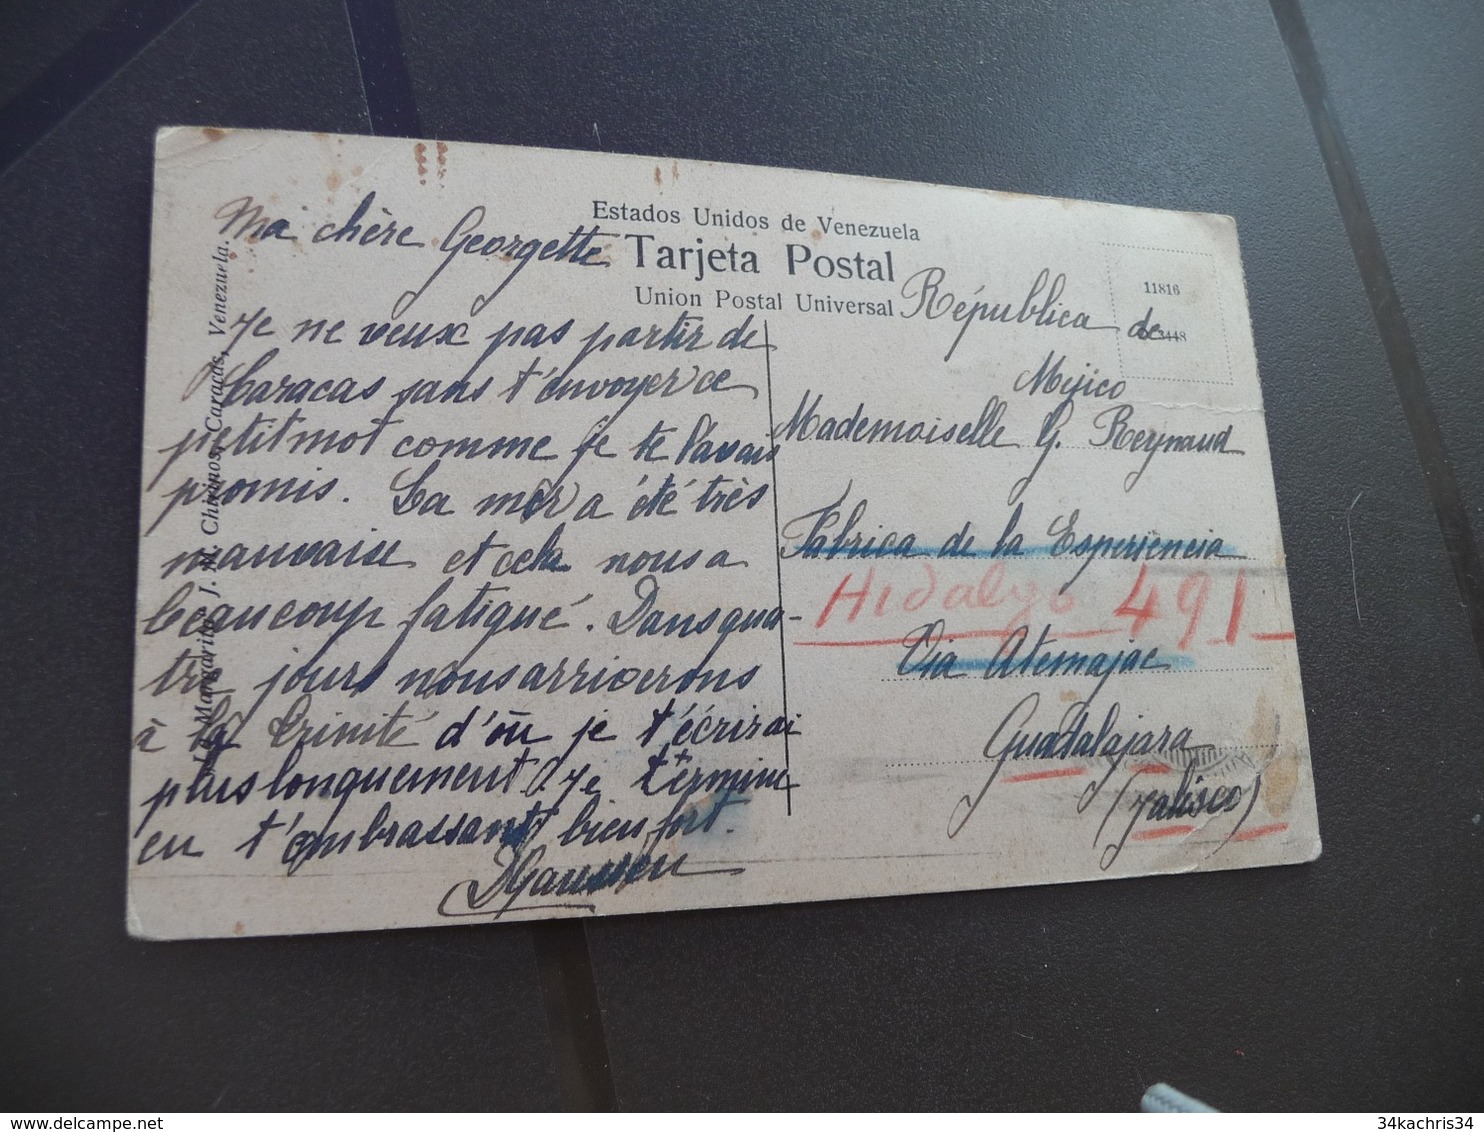 Estados Unidos de Venezuela
Tarjeta Postal
Union Postal Universal
Ma chère Georgette
Je ne veux pas partir de
Caracas sans t'envoyer ce
petit mot comme je te l'avais
promis. La mer a été très
mauvaise et cela nous a
beaucoup fatigué. Dans qua-
tre jours nous arriverons
à la Trinité d'où je t'écrirai
plus longuement. Je termine
en t'embrassant bien fort.
República de
Mejico
Mademoiselle G. Reynaud
Fabrica de la Esperiencia
Hidalgo 491
Via Atemajac
Guadalajara
(Jalisco)
11816
3448
La Margarita, J. M. Chirinos, Caracas, Venezuela.
34kachris34
delcampe.net